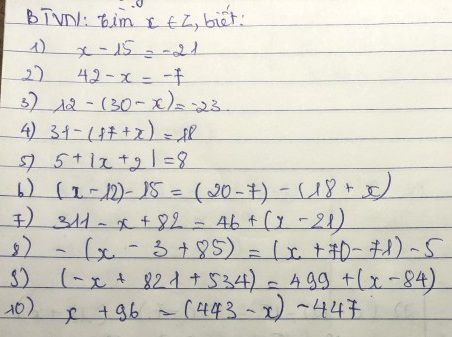 BTVN: tìm x ∈ Z, biết:
1) x - 15 = -21
2) 42 - x = -7
3) 12 - (30 - x) = -23.
4) 31 - (17 + x) = 18
5) 5 + |x + 2| = 8
6) (x - 12) - 15 = (20 - 7) - (18 + x)
7) 311 - x + 82 = 46 + (x - 21)
8) - (x - 3 + 85) = (x + 70 - 71) - 5
9) (-x + 821 + 534) = 499 + (x - 84)
10) x + 96 = (443 - x) - 447